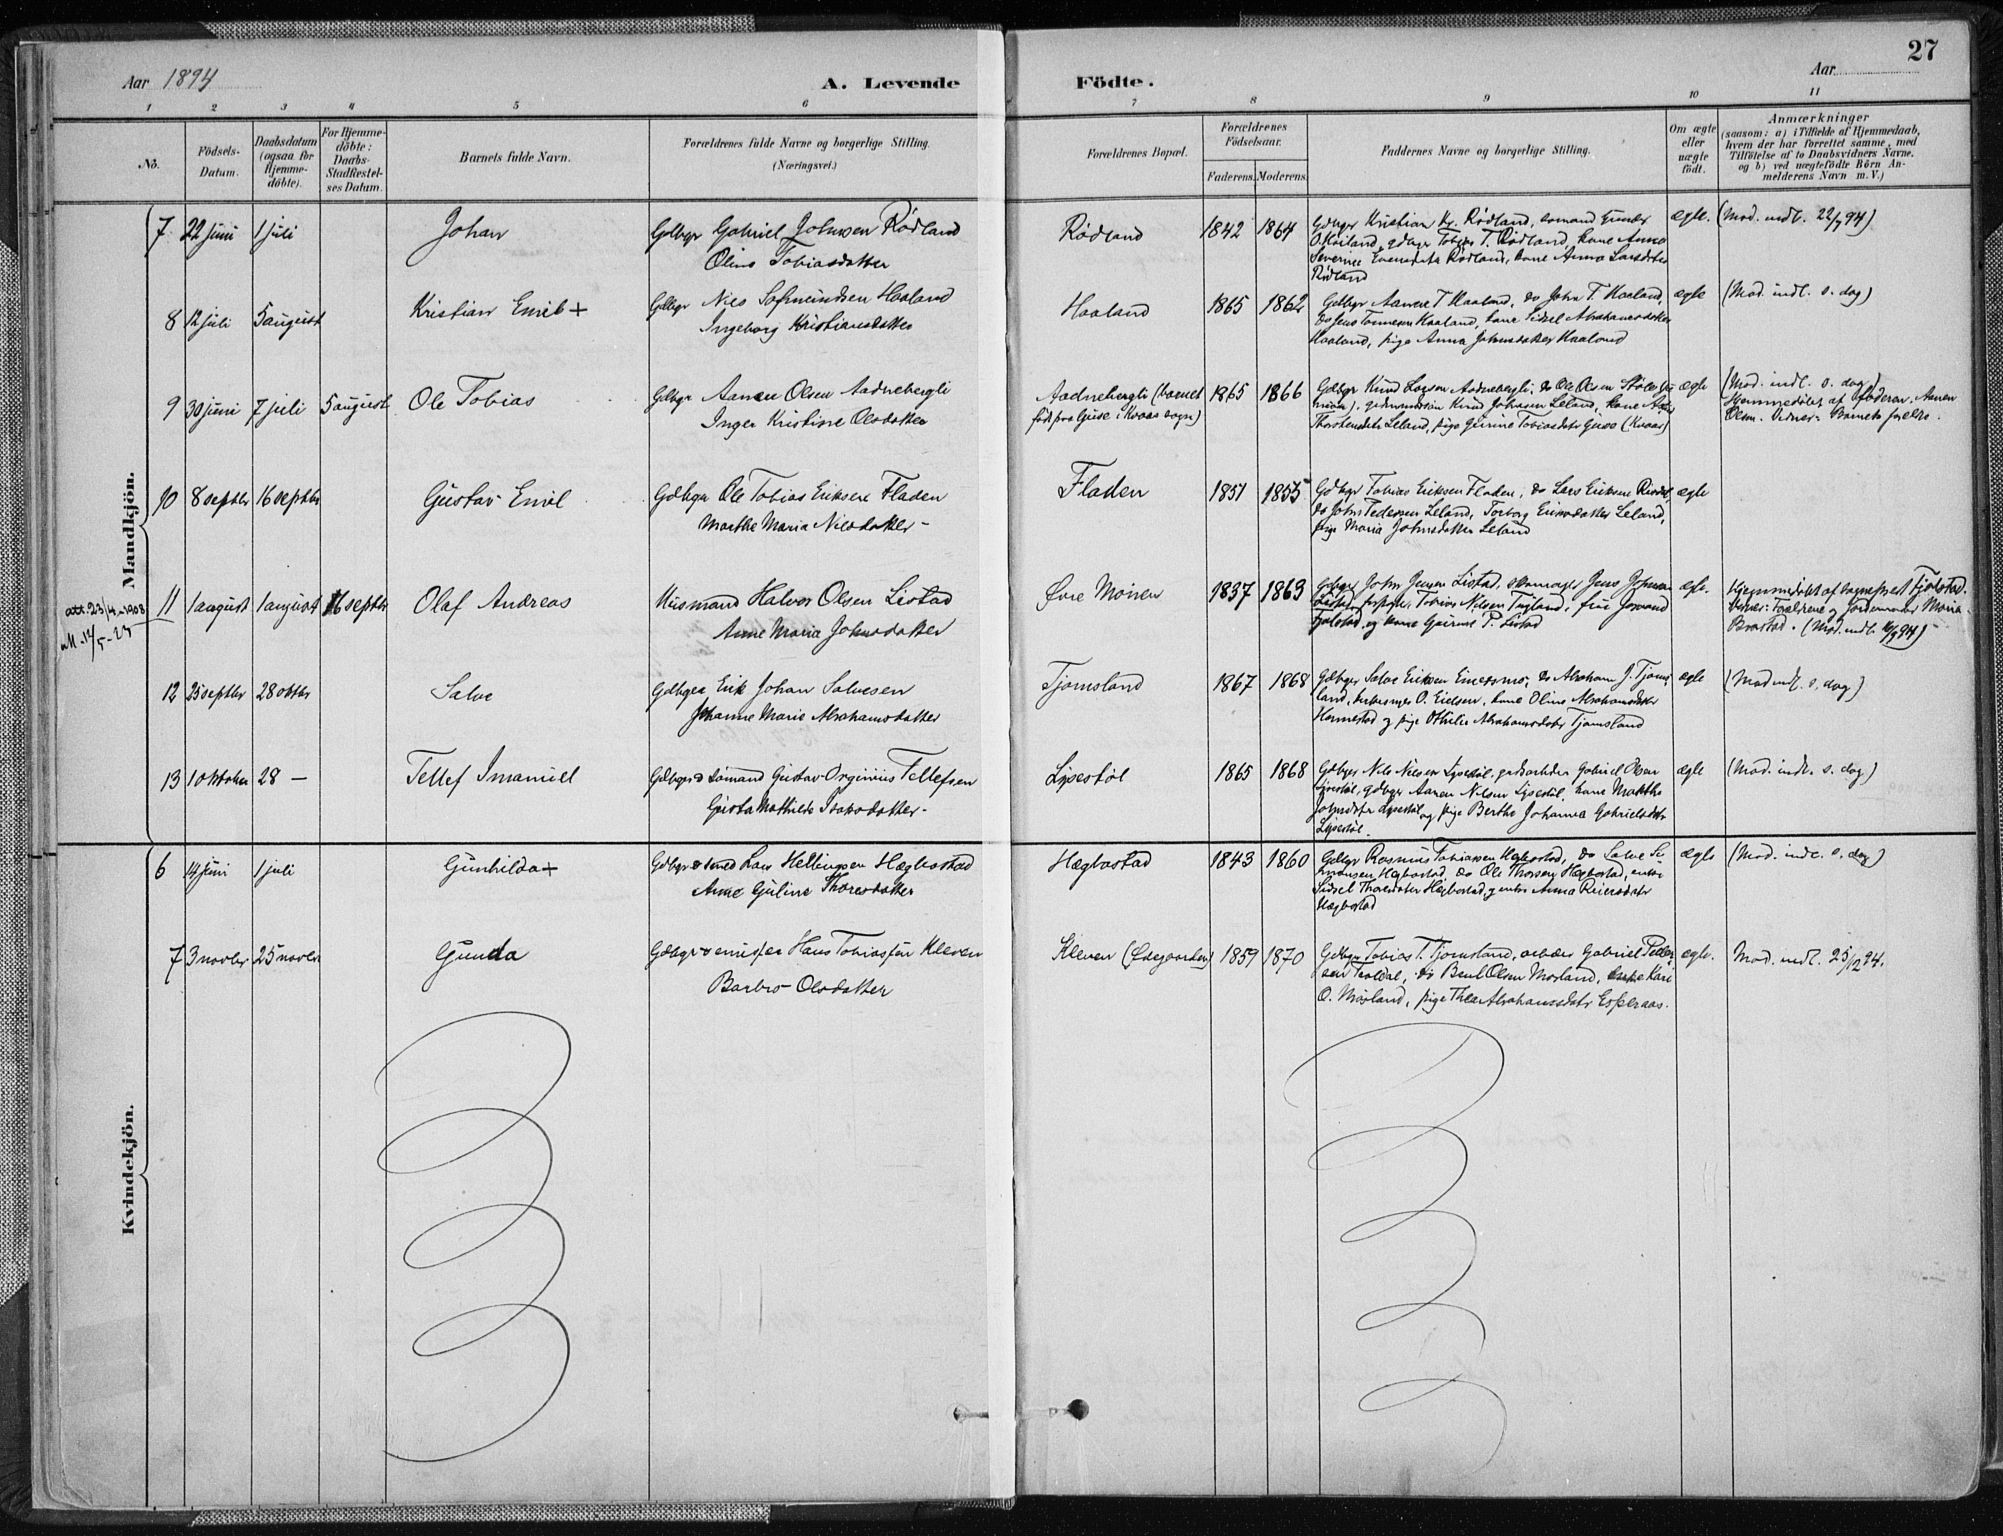 Aar 1894
A. Levende Födte.
Aar
27
1 2 3 4 5 6 7 8 9 10 11
No.
Födsels-
Datum.
Daabsdatum
(ogsaa for
Hjemme-
döbte).
For Hjemme-
döbte:
Daabs-
Stadfæstel-
ses Datum.
Barnets fulde Navn.
Forældrenes fulde Navne og borgerlige Stilling.
(Næringsvei.)
Forældrenes Bopæl.
Forældrenes
Födselsaar.
Faderens. Moderens.
Faddernes Navne og borgerlige Stilling.
Om ægte
eller
uægte
födt.
Anmærkninger
(saasom: a) i Tilfælde af Hjemmedaab,
hvem der har forrettet samme, med
Tilföielse af to Daabsvidners Navne,
og b) ved uægtefödte Börn An-
melderens Navn m. V.)
Mandkjön.
7 22 juni 1 juli
Johan
Gdbgr Gabriel Johnsen Rødland
Oline Tobiasdatter
Rødland
1842 1864
Gdbgr Kristian Kr. Rødland,
gdbgr Tobias T. Rødland, kone Anna
Rødland, kone Anna Larsdatter
Rødland
ægte.
(Mod. indl. 22/7 94)
8 12 juli 5 august
Kristian Emil +
Gdbgr Nils Sigmundsen Haaland
Ingeborg Kristiansdatter
Haaland
1865 1862
Gdbgr Aanen T. Haaland, do John T. Haaland,
do Jens Tønnesen Haaland, kone Sidsel Abrahamsdatter
Haaland, pige Anna Johnsdatter Haaland
ægte
(Mod. indl. s. dag)
9 30 juni 7 juli 5 august
Ole Tobias
Gdbgr Aanen Olsen Aadnebergli
Inger Kristine Olsdatter
Aadnebergli (barnet
født paa Gyse i Kvaas sogn)
1865 1866
Gdbgr Knud Larsen Aadnebergli, do Ole Olsen
gdmandssøn Knud Johnsen Leland, kone
Leland, pige Gurine Tobiasdatr (Kvaas)
ægte
(Mod. indl. s. dag)
Hjemmedøbt af faderen Aanen
Olsen. Vidner: Barnets forældre.
10 8 septbr 16 septbr
Gustav Emil
Gdbgr Ole Tobias Eriksen Fladen
Marthe Maria Nilsdatter -
Fladen
1851 1855
Gdbgr Tobias Eriksen Fladen, do Lars Eriksen
do John Pedersen Leland, Torborg Eriksdatter Leland,
pige Maria Johnsdatter Leland
ægte
att. 23/4-1908
11 1 august 1 august 16 septbr
Olaf Andreas
Husmand Halvor Olsen Listad
Anne Maria Johnsdatter
Øvre Monen
1837 1863
Gdbgr John Jensen Listad, Jens Johnsen
Listad, Tobias Nilsen Tugland, frue
Fjolstad, og kone Gurine P. Listad
ægte.
Hjemmedøbt af sogneprest Fjolstad.
Vidner: Forældrene og Jordemoder Maria
Bvastad. (Mod. indl. 16/9 94)
12 25 septbr 28 oktbr
Salve
Gdbger Erik Johan Salvesen
Johanne Marie Abrahamsdatter
Tjomsland
1867 1868
Gdbger Salve Eriksen do Abraham J. Tjoms-
land, O. Eielsen, kone Oline Abrahamsdatr
og pige Othilie Abrahamsdatr Tjomsland
ægte
(Mod indl. s. dag)
13 1 oktober 28 —
Tellef Imanuel
Gdbgr & sømand Gustav Orginius Tellefsen
Gusta Mathilde Isaksdatter -
Lysestöl
1865 1868
Gdbger Nils Nilsen Lysestöl, Gabriel Olsen
Lysestöl, gdbgr Aanen Nilsen Lysestöl, kone Marthe
Johnsdatr Lysestöl og pige Berthe Johanna Gabrielsdatr
Lysestöl.
ægte
(Mod. indl. s. dag)
Kvindekjön.
6 14 juni 1 juli
Gunhilda +
Gdbgr & smed Lars Helliugsen Hægbostad
Anne Guline Thoresdatter
Hægbostad
1843 1860
Gdbgr Rasmus Tobiassen Hægbostad, do Salve
Hægbostad, do Ole Thorsen Hægbostad, enke
Sidsel Thoresdatter Hægbostad, og enke Anna Reiersdatr
Hægbostad
ægte
(Mod. indl. s. dag)
7 3 novbr 25 novbr
Gunda
Gdbgr & Hans Tobiassen Kleven
Barbro Olsdatter
Kleven (Ødegaarden)
1859 1870
Gdbgr Tobias T. Tjomsland, arbeider Gabriel Peder-
sen do Bent Olsen Mørland, enke Kari
O. Mørland, pige Thea Abrahamsdatr Esperaas.
ægte.
Mod. indl. 25/12 94.